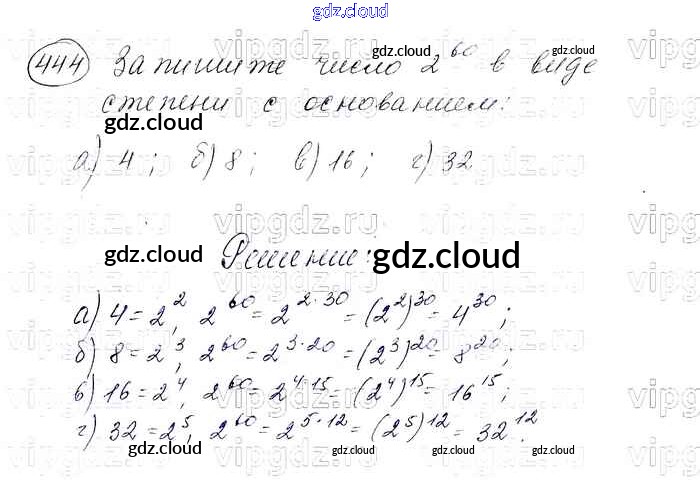 gdz.cloud
444 Запишите число 2^60 в виде
степени с основанием:
а) 4; б) 8; в) 16; г) 32
Решение:
а) 4 = 2^2, 2^60 = 2^(2·30) = (2^2)^30 = 4^30;
б) 8 = 2^3, 2^60 = 2^(3·20) = (2^3)^20 = 8^20;
в) 16 = 2^4, 2^60 = 2^(4·15) = (2^4)^15 = 16^15;
г) 32 = 2^5, 2^60 = 2^(5·12) = (2^5)^12 = 32^12.
gdz.cloud
gdz.cloud
gdz.cloud
gdz.cloud
gdz.cloud
gdz.cloud
gdz.cloud
gdz.cloud
gdz.cloud
vipgdz.ru
vipgdz.ru
vipgdz.ru